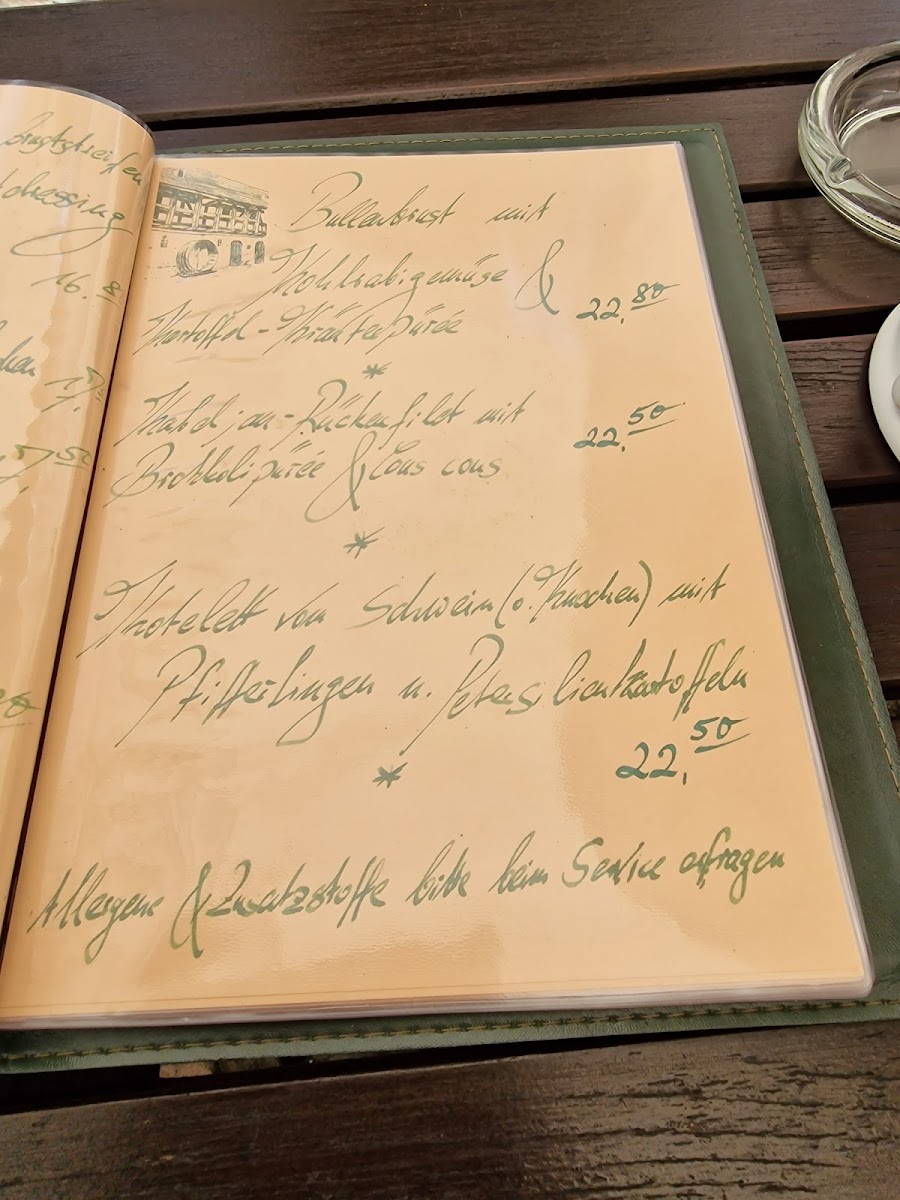 brustreifen
dressing
16.8
Bullenbrust mit
Kohlrabigemüse &
Kartoffel-Kräuterpürée 22,80
*
Kabeljau-Rückenfilet mit
Brokkolipürée & Cous cous 22,50
*
Kotelett vom Schwein (o. Knochen) mit
Pfifferlingen u. Petersilienkartoffeln
22,50
*
Allergene & Zusatzstoffe bitte beim Service erfragen